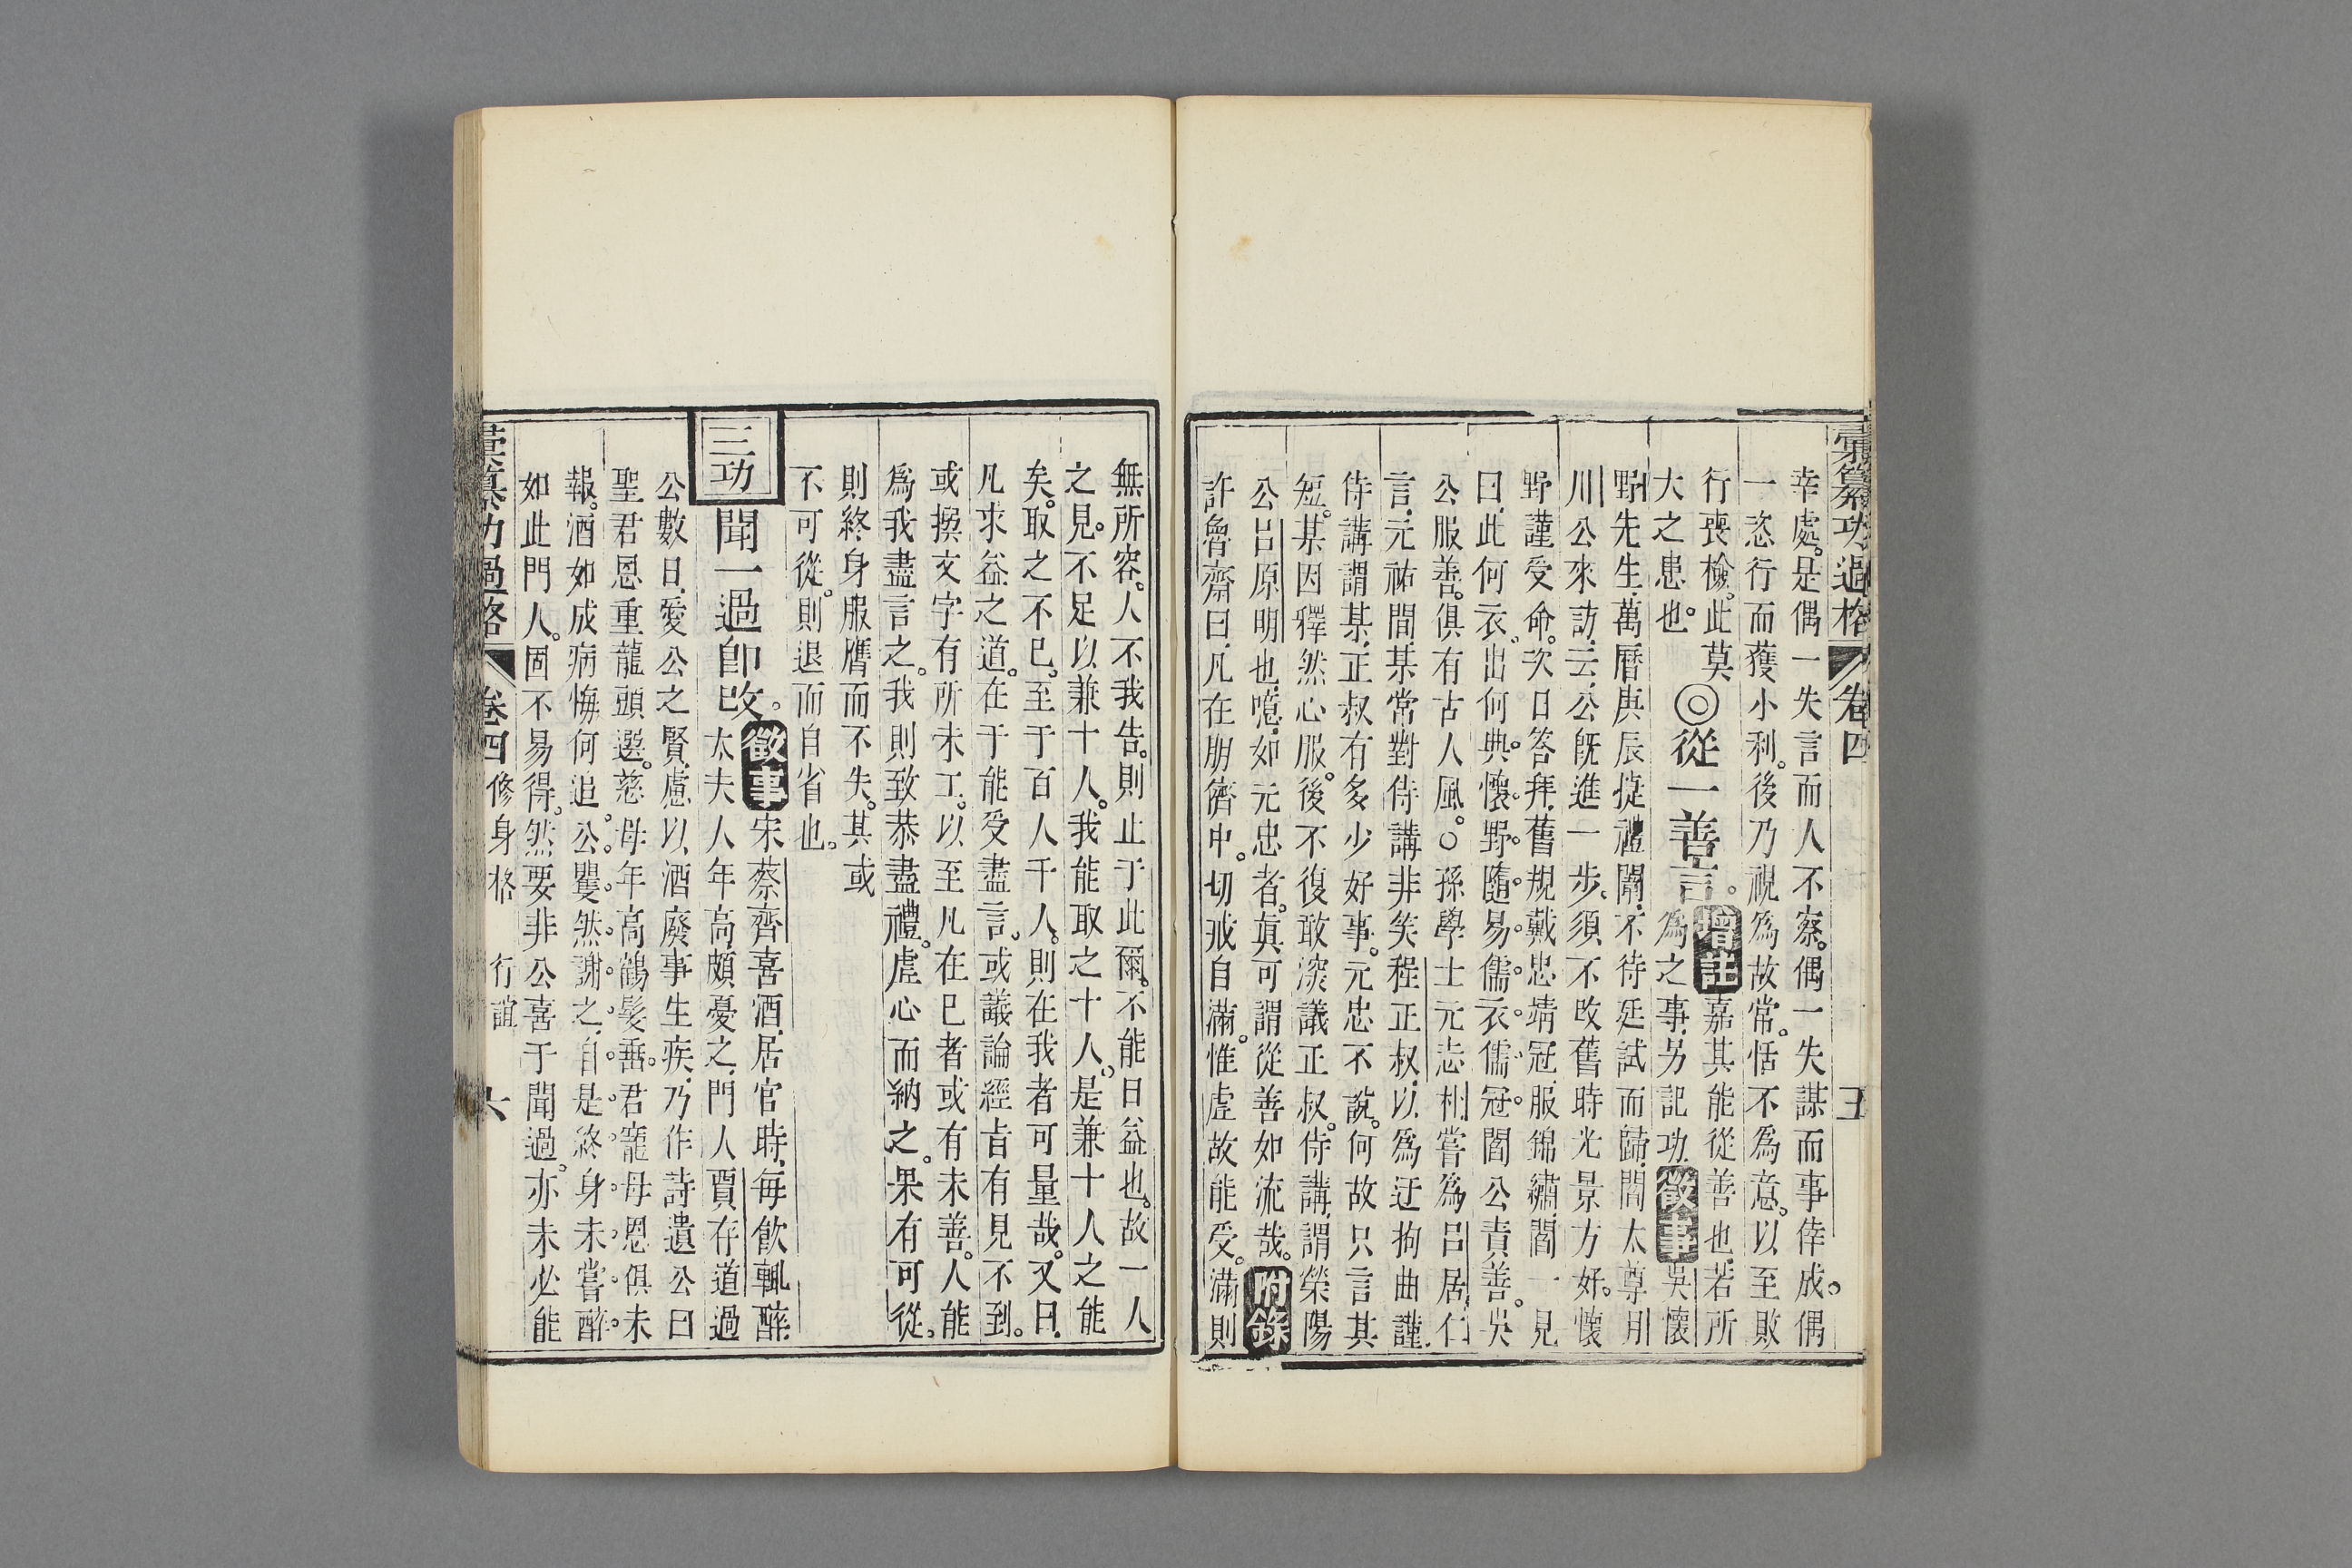 彙纂功過格 卷四 五
幸處。是偶一失言而人不察。偶一失謀而事倖成。偶
一恣行而獲小利。後乃視為故常。恬不為意。以至敗
行喪檢。此莫大之患也。
◎從一善言。增註嘉其能從善也。若所為之事。另記功。徵事吳懷
野先生。萬曆庚辰捷禮闈。不待廷試而歸。閻太尊月
川公來訪。云。公旣進一步。須不改舊時光景方好。懷
野謹受命。次日答拜。舊規戴忠靖冠。服錦繡。閻一見
曰。此何衣。出何典。懷野。隨易儒衣儒冠。閻公責善。吳
公服善。俱有古人風。○孫學士元忠朴嘗為呂居仁
言。元祐間。某常對侍講非笑程正叔。以為迂拘曲謹。
侍講謂某。正叔有多少好事。元忠不說。何故只言其
短。某因釋然心服。後不復敢深議正叔。侍講。謂滎陽
公呂原明也。噫。如元忠者。眞可謂從善如流哉。附錄
許魯齋曰。凡在朋儕中。切戒自滿。惟虛故能受。滿則
無所容。人不我告。則止于此爾。不能日益也。故一人
之見。不足以兼十人。我能取之十人。是兼十人之能
矣。取之不已。至于百人千人。則在我者可量哉。又曰。
凡求益之道。在于能受盡言。或議論經旨有見不到。
或撰文字有所未工。以至凡在己者或有未善。人能
為我盡言之。我則致恭盡禮。虛心而納之。果有可從。
則終身服膺而不失。其或
不可從。則退而自省也。
三功 聞一過卽改。徵事宋蔡齊喜酒。居官時。每飲輒醉。太夫人年高頗憂之。門人賈存道過
公數日。愛公之賢。慮以酒廢事生疾。乃作詩遺公曰
聖君恩重龍頭選。慈母年高鶴髮垂。君寵母恩俱未
報。酒如成病悔何追。公矍然謝之。自是終身未嘗醉。
如此門人。固不易得。然要非公喜于聞過。亦未必能
彙纂功過格 卷四 修身格 行誼 六